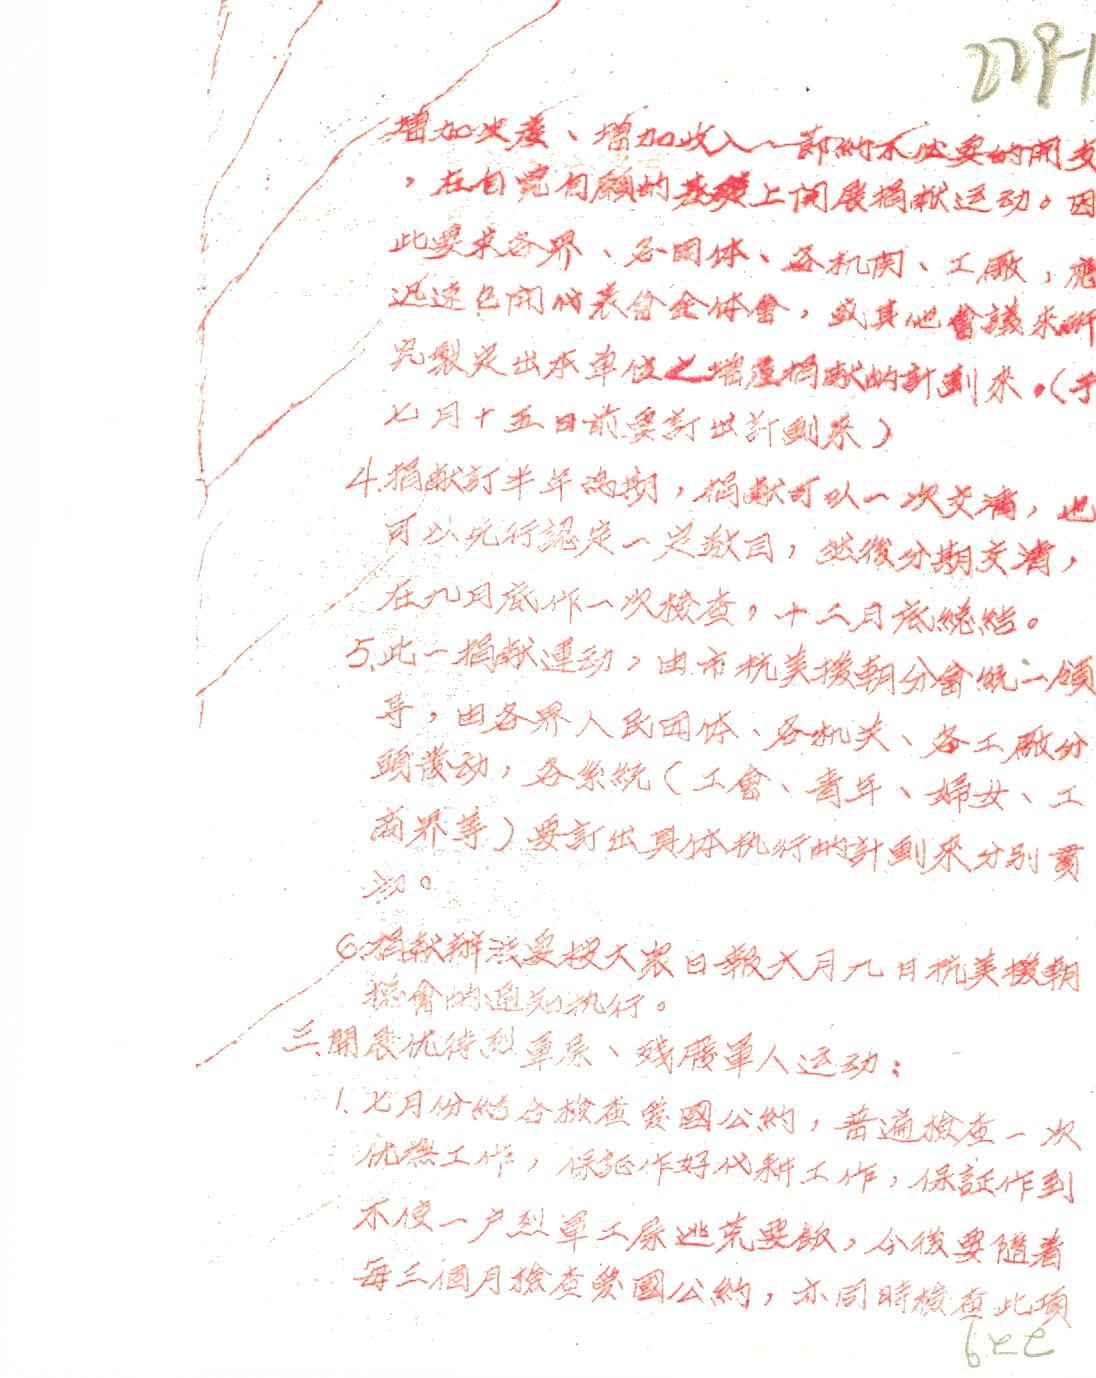 229-1
增加生產、增加收入、節約不必要的開支
，在自覺自願的基礎上開展捐献运动。因
此要求各界、各团体、各机関、工廠，應
迅速召開代表會全体會，或其他會議來研
究製定出本單位之增產捐献的計劃來。（于
七月十五日前要訂出計劃來）
4.捐献訂半年為期，捐献可以一次交清，也
可以先行認定一定数目，然後分期交清，
在九月底作一次檢查，十二月底總結。
5.此一捐献運动，由市抗美援朝分會統一領
导，由各界人民团体、各机关、各工廠分
頭發动，各系統（工會、青年、婦女、工
商界等）要訂出具体执行的計劃來分别貫
彻。
6.捐献辦法要按大衆日報六月九日抗美援朝
總會的通知执行。
三、開展优待烈軍屬、殘廢軍人运动：
1.七月份結合檢查愛國公約，普遍檢查一次
优撫工作，保証作好代耕工作，保証作到
不使一户烈軍工屬逃荒要飯，今後要隨着
每三個月檢查愛國公約，亦同時檢查此項